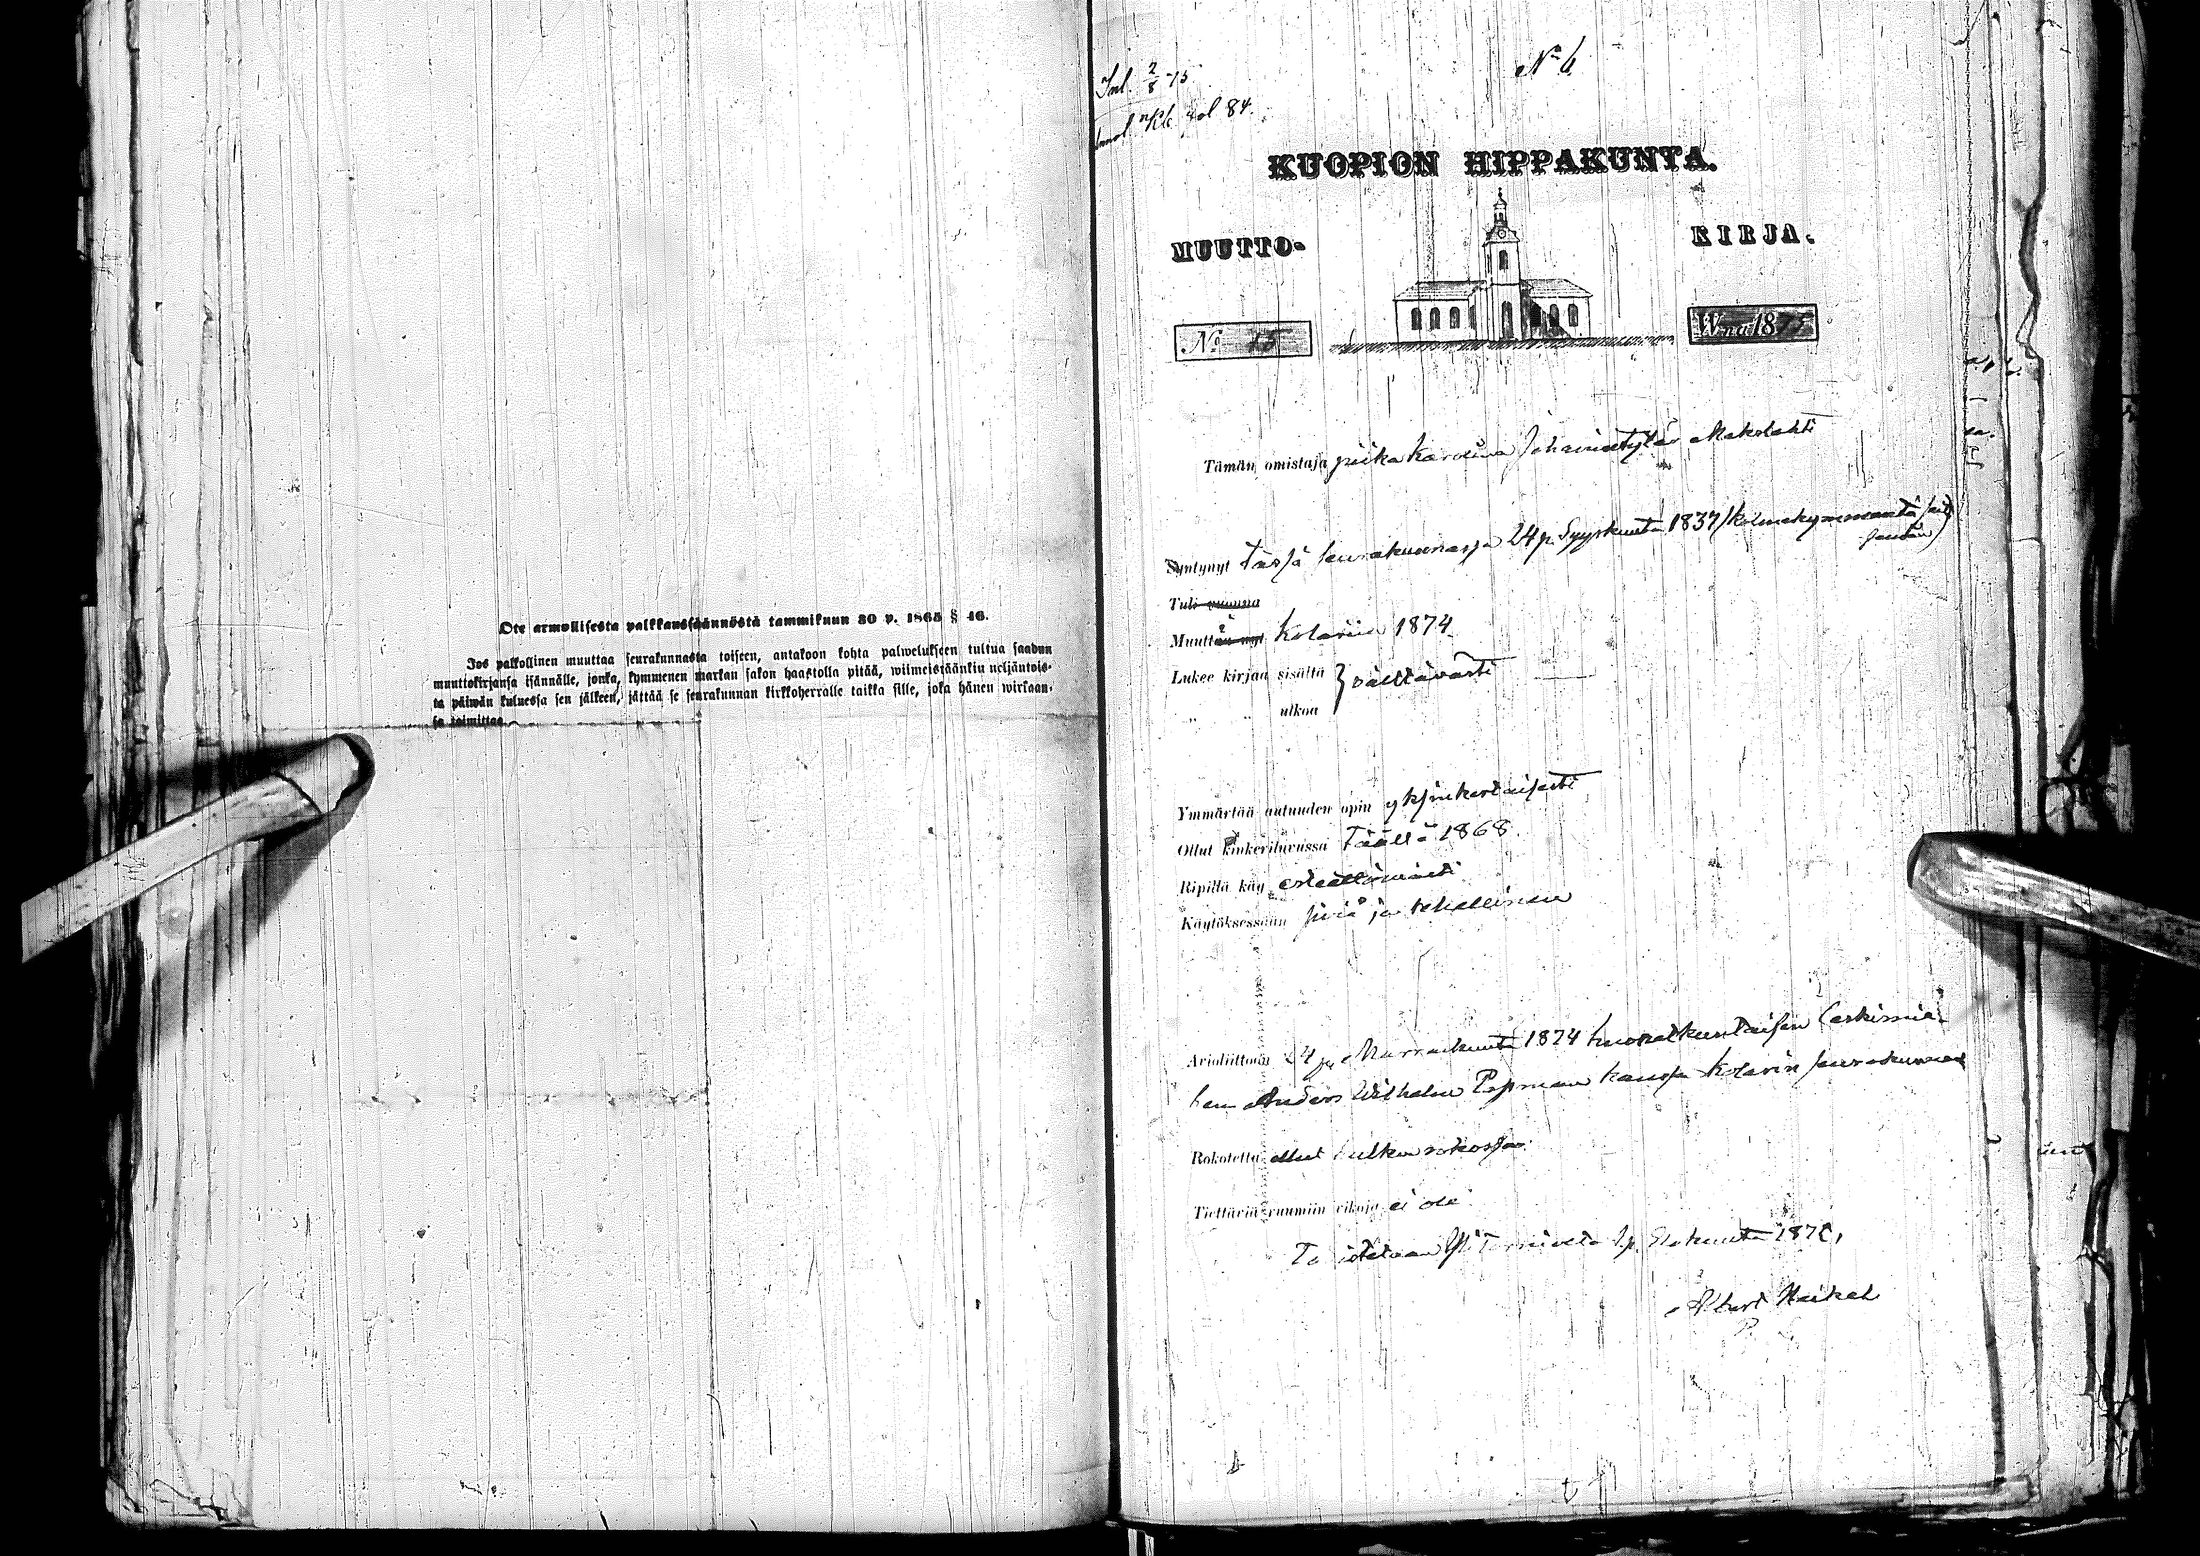 Ote armollisesta palkkaussäännöstä tammikuun 30 p. 1865 § 46.
Jos palkollinen muuttaa seurakunnasta toiseen, antakoon kohta palwelukseen tultua saadun
muuttokirjansa isännälle, jonka, kymmenen markan sakon haastolla pitää, wiimeistäänkin neljäntois-
ta päiwän kuluessa sen jälkeen, jättää se seurakunnan kirkkoherralle taikka sille, joka hänen wirkaan-
sa toimittaa.
No 6
Inl. 2/8 -75
Kb fol 84.
KUOPION HIPPAKUNTA.
MUUTTO- KIRJA.
No 15 W:na 1875
Tämän omistaja piika Karolina Johanintytär Makolahti
Syntynyt tässä seurakunnassa 24 p. Syyskuuta 1837 (kolmekymmentä seit
semän)
Tuli vuonna
Muuttaa Kolariin 1874
Lukee kirjaa sisältä } välttävästi
" " ulkoa
Ymmärtää autuuden opin yksinkertaisesti
Ollut kinkeriluvussa täällä 1868.
Ripillä käy esteettömästi
Käytöksessään siviä ja tekallinen
Avioliittoon 24 p. Marraskuuta 1874 huonekuntaisen Leskimie-
hen Anders Wilhelm Pepman kanssa Kolarin seurakunnas
Rokotettu ollut sulkurokossa
Tiettäviä ruumiin vikoja ei ole
Todistetaan Yli Torniosta 1 p. Elokuuta 1875,
Albert Heikel
P.